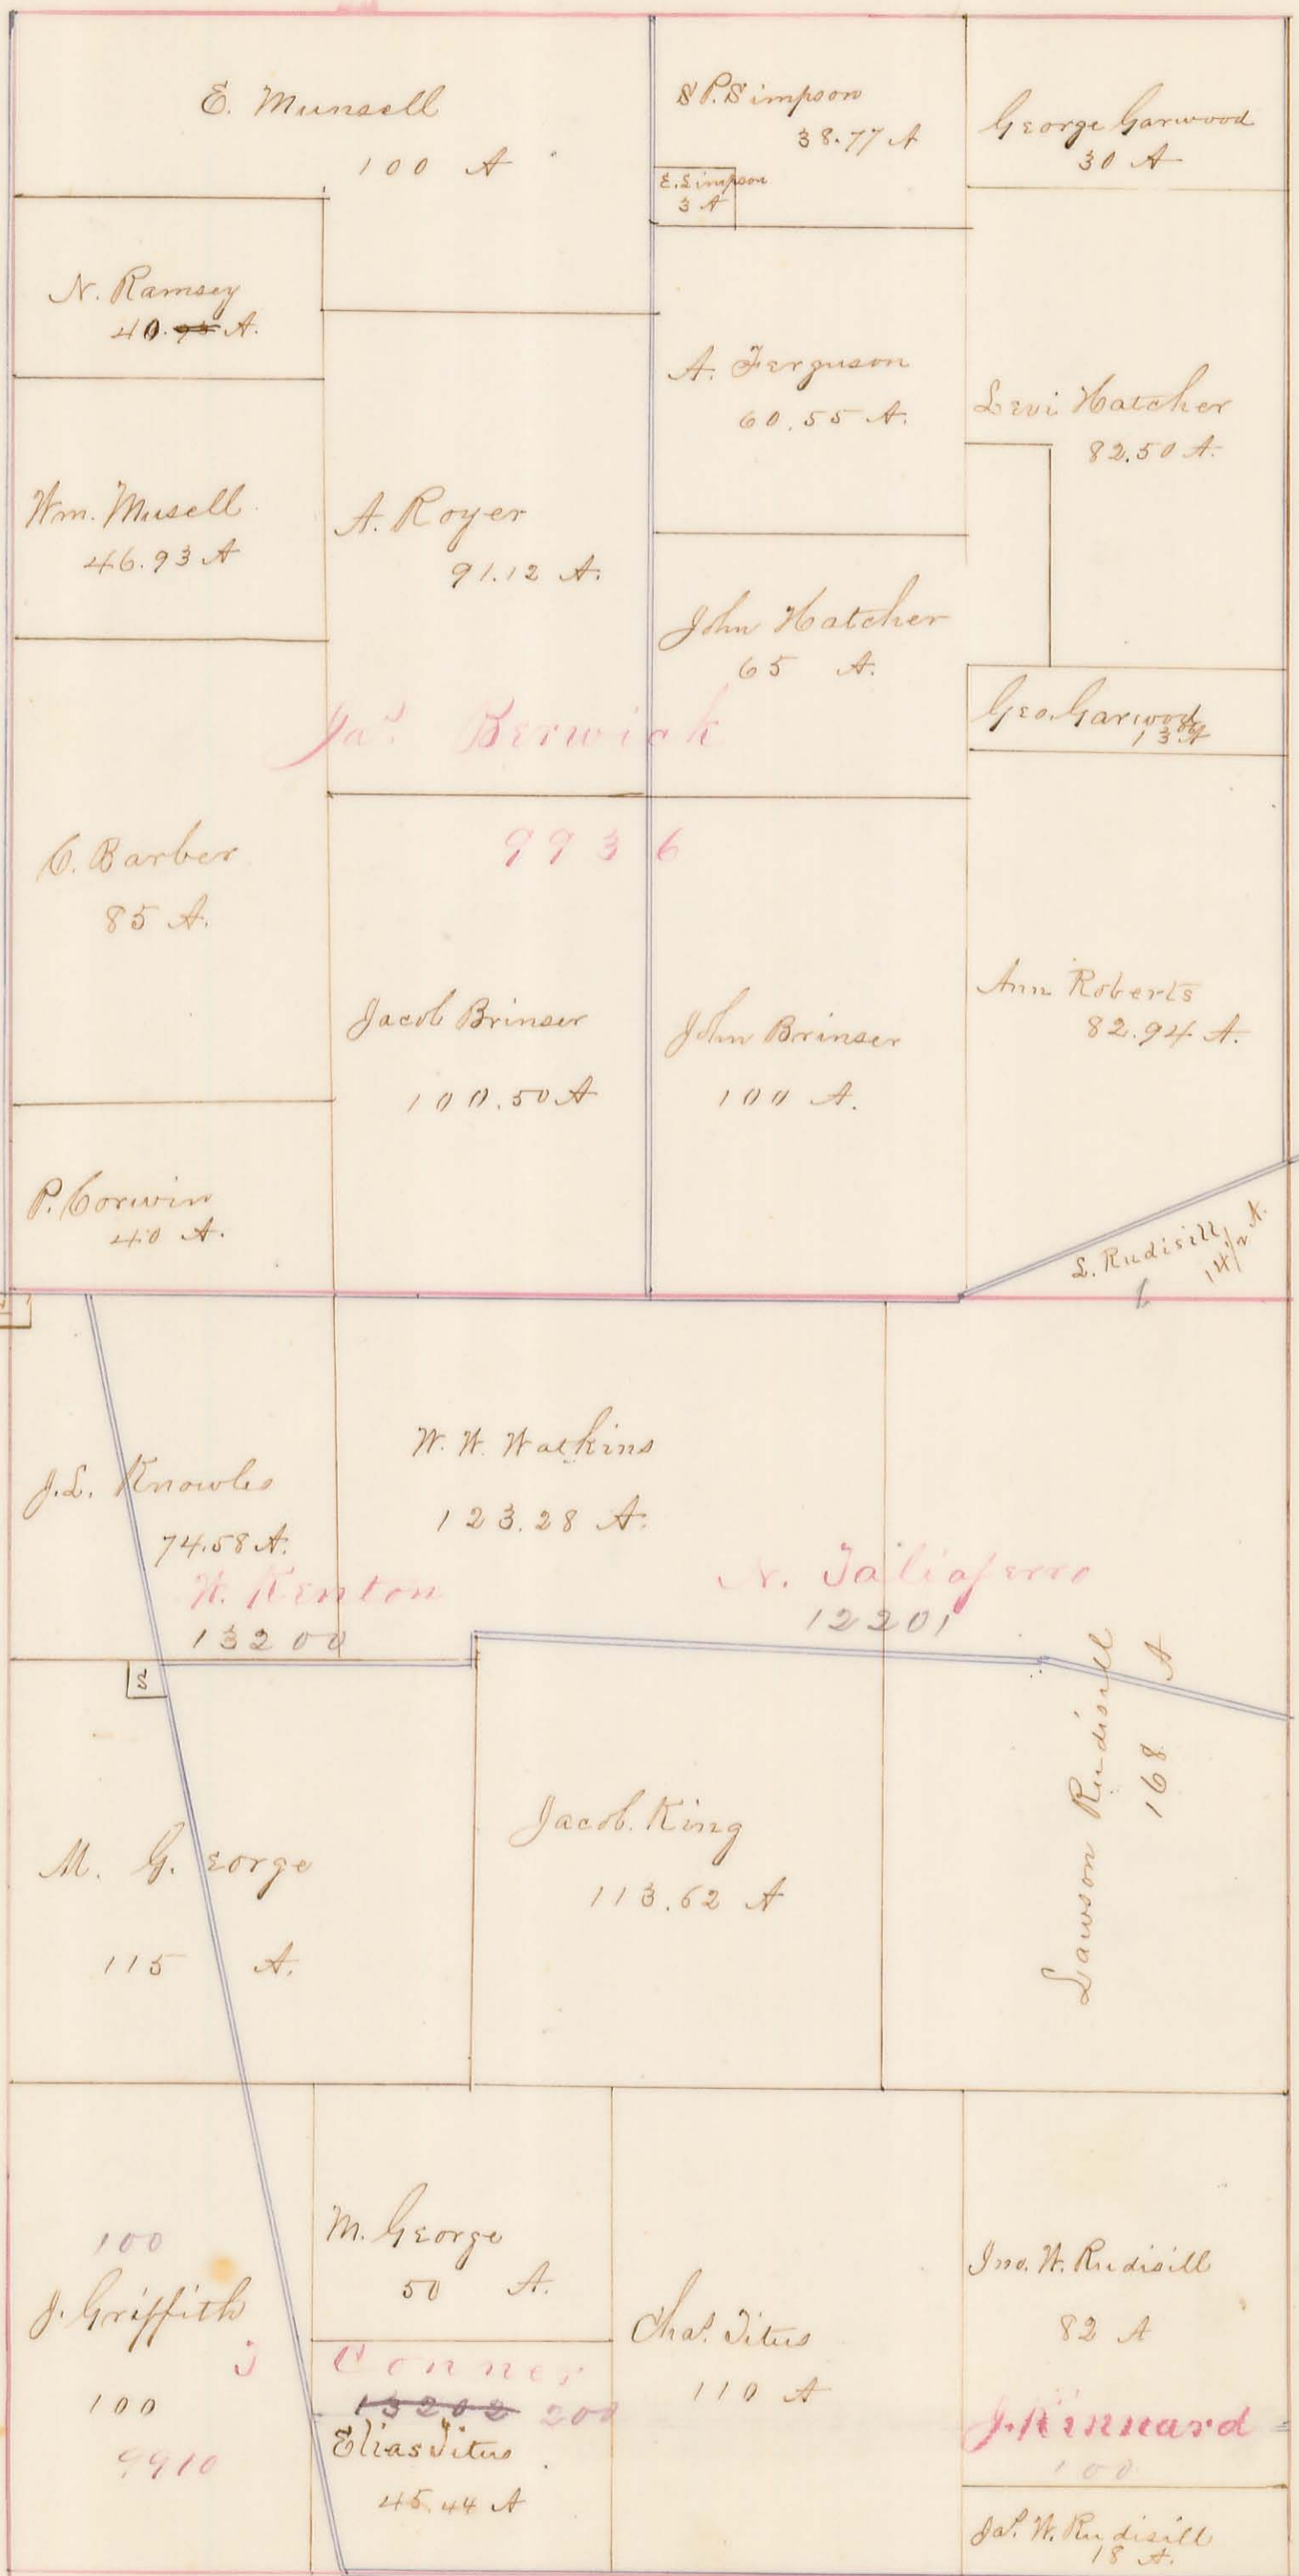 E. Munsell
100 A
S P. Simpson
38.77 A
George Garwood
30 A
E. Simpson
3 A
N. Ramsey
40. A.
A. Ferguson
60.55 A.
Levi Hatcher
82.50 A.
Wm. Musell
46.93 A
A. Royer
91.12 A.
John Hatcher
65 A.
Geo. Garwood
13 A
Jas. Berwick
9936
C. Barber
85 A.
Jacob Brinser
100.50 A
John Brinser
100 A.
Ann Roberts
82.94 A.
P. Corwin
40 A.
L. Rudisill
14 1/2 A.
J. L. Knowles
74.58 A.
W. W. Watkins
123.28 A.
W. Kenton
13200
N. Taliaferro
12201
S
Lawson Rudisill
168 A
M. G. eorge
115 A.
Jacob. King
113.62 A
100
J. Griffith
100
9910
M. George
50 A.
J Conner
13202 200
Elias Titus
45.44 A
Chas. Titus
110 A
Jno. W. Rudisill
82 A
J. Kinnard
100
Jas. W. Rudisill
18 A.